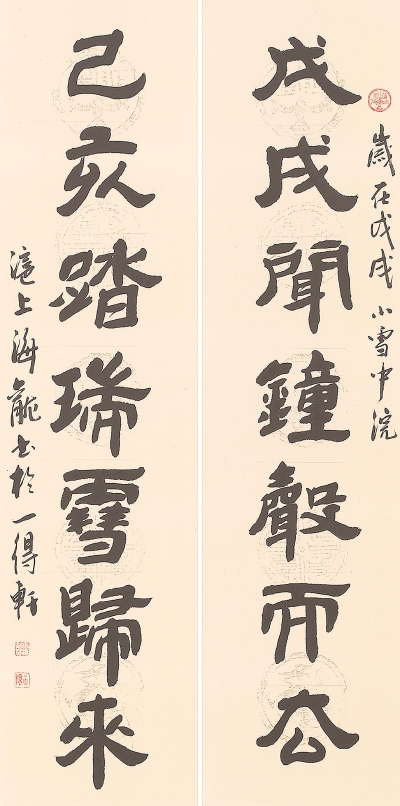 歲在戊戌小雪中浣
戊戌聞鐘聲而去
己亥踏瑞雪歸來
滬上海龍書於一得軒